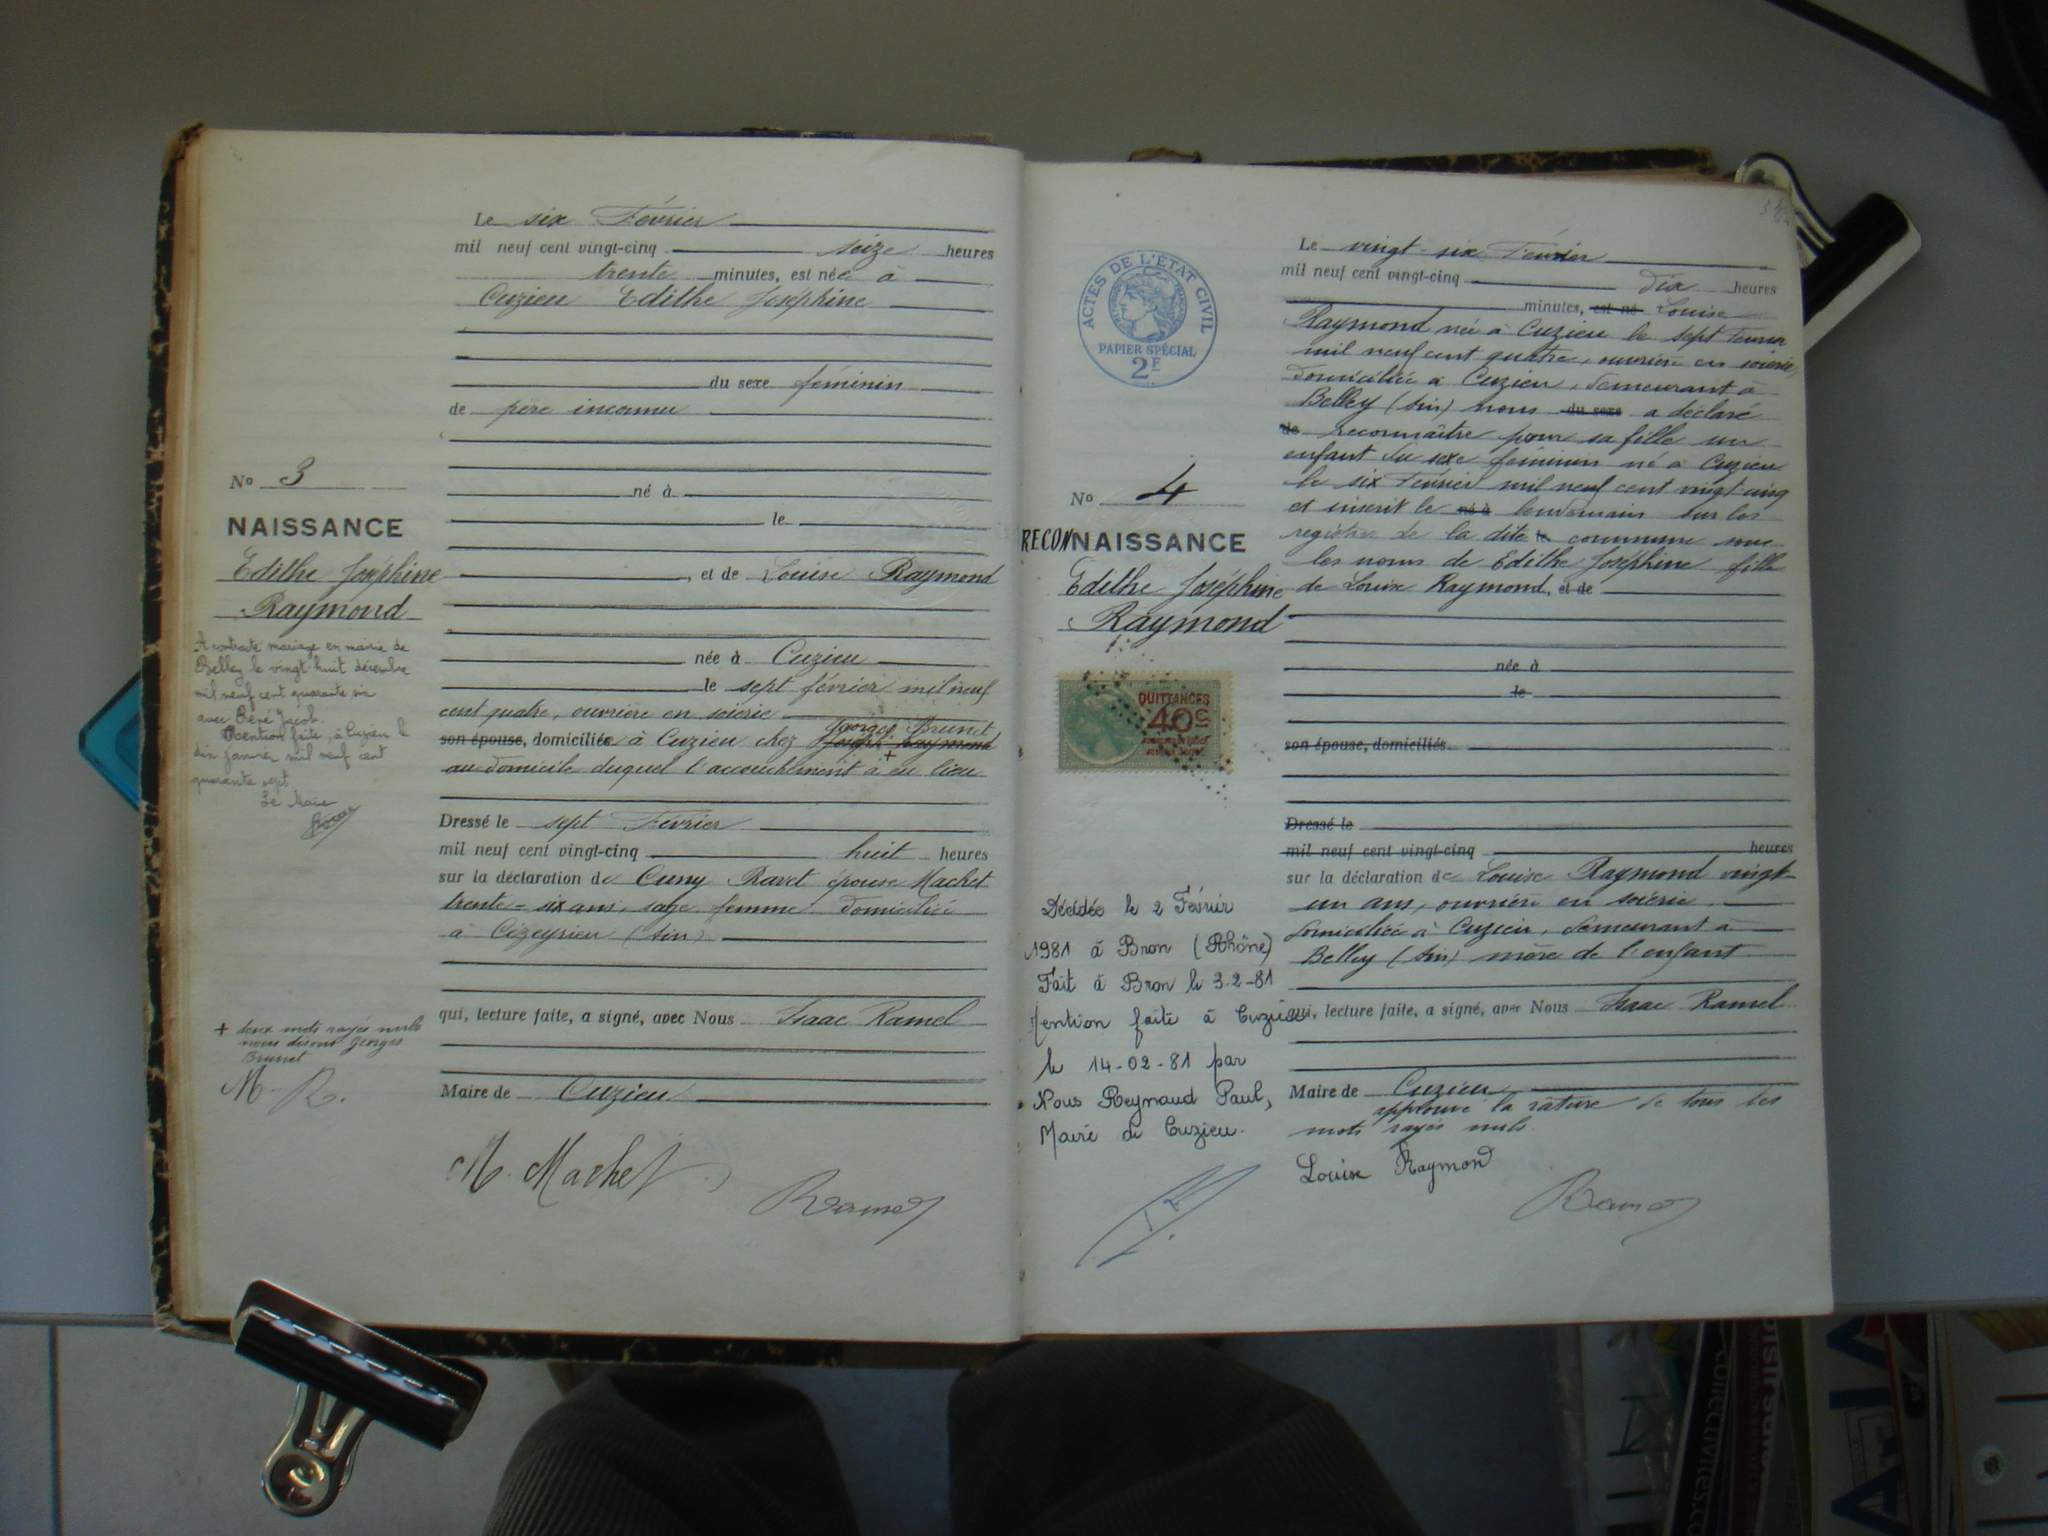 Le six Février
mil neuf cent vingt-cinq seize heures
trente minutes, est née à
Cuzieu Edithe Joséphine
du sexe féminin
de père inconnu
né à
le
, et de Louise Raymond
née à Cuzieu
le sept février mil neuf
cent quatre, ouvrière en soierie
Georges Brunet
son épouse, domiciliée à Cuzieu chez Joseph Raymond
au domicile duquel l'accouchement a + eu lieu
Dressé le sept Février
mil neuf cent vingt-cinq huit heures
sur la déclaration de Cuny Ravet épouse Machet
trente-six ans, sage femme domiciliée
à Ceyzérieu (Ain)
qui, lecture faite, a signé, avec Nous Isaac Ramel
Maire de Cuzieu
M. Machet
Ramel
No 3
NAISSANCE
Edithe Joséphine
Raymond
A contracté mariage en mairie de
Belley le vingt-huit décembre
mil neuf cent quarante six
avec René Jacob.
Mention faite à Cuzieu le
dix janvier mil neuf cent
quarante sept.
Le Maire
+ deux mots rayés nuls
nous disons Georges
Brunet
M. R.
ACTES DE L'ÉTAT CIVIL
PAPIER SPÉCIAL
2F
No 4
RECONNAISSANCE
Edithe Joséphine
Raymond
QUITTANCES
40c
Décédée le 2 Février
1981 à Bron (Rhône)
Fait à Bron le 3-2-81
Mention faite à Cuzieu
le 14-02-81 par
Nous Reynaud Paul,
Maire de Cuzieu.
Le vingt-six Février
mil neuf cent vingt-cinq Dix heures
minutes, est né Louise
Raymond née à Cuzieu le sept Février
mil neuf cent quatre, ouvrière en soierie,
domiciliée à Cuzieu, demeurant à
Belley (Ain) nous du sexe a déclaré
de reconnaître pour sa fille un
enfant du sexe féminin né à Cuzieu
le six Février mil neuf cent vingt-cinq
et inscrit le né à lendemain sur les
registres de la dite le commune sous
les noms de Edithe Joséphine fille
de Louise Raymond, et de
née à
le
son épouse, domiciliés
Dressé le
mil neuf cent vingt-cinq heures
sur la déclaration de Louise Raymond vingt-
un ans, ouvrière en soierie
domiciliée à Cuzieu, demeurant à
Belley (Ain) mère de l'enfant
qui, lecture faite, a signé, avec Nous Isaac Ramel
Maire de Cuzieu
approuvé la rature de tous les
mots rayés nuls.
Louise Raymond
Ramel